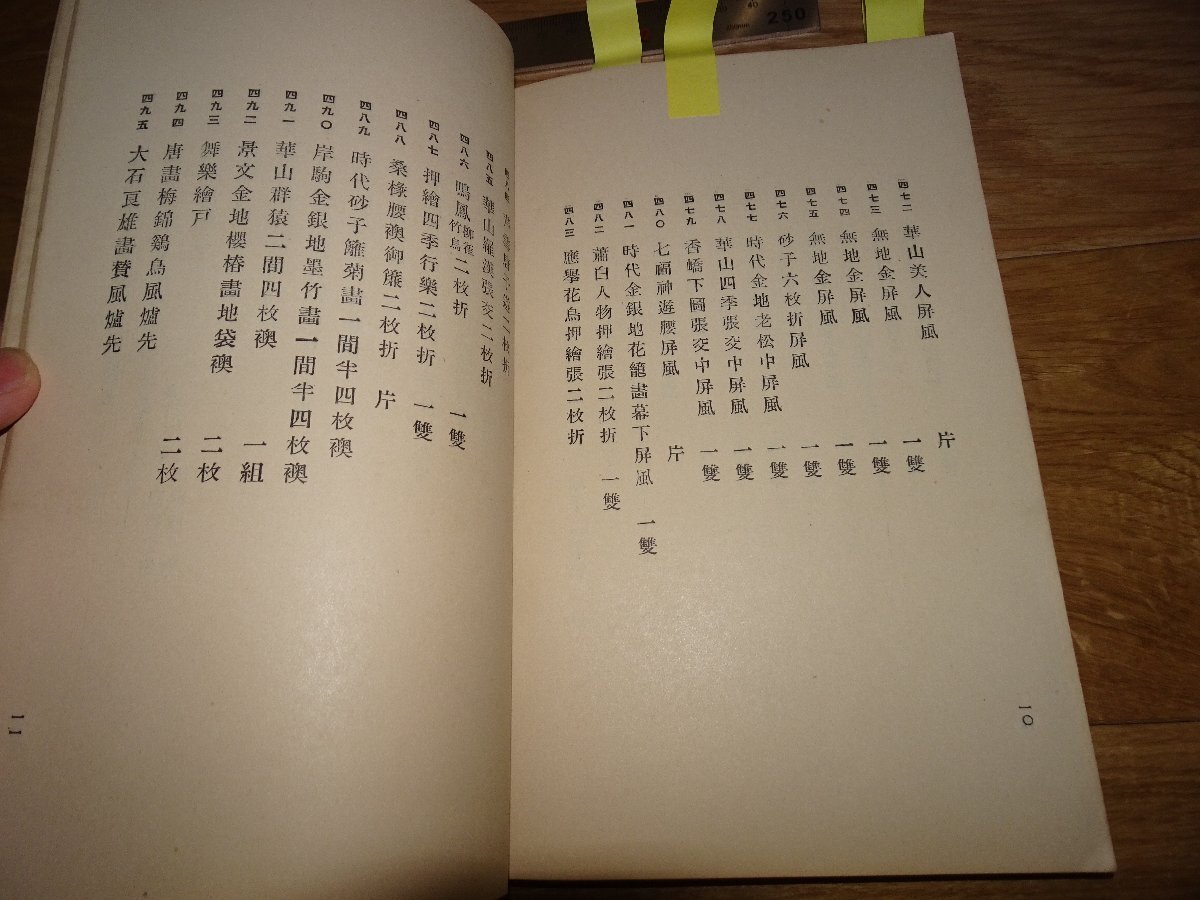 四七二 華山美人屏風 片
四七三 無地金屏風 一雙
四七四 無地金屏風 一雙
四七五 無地金屏風 一雙
四七六 砂子六枚折屏風 一雙
四七七 時代金地老松中屏風 一雙
四七八 華山四季張交中屏風 一雙
四七九 香嶠下圖張交中屏風 一雙
四八〇 七福神遊腰屏風 片
四八一 時代金銀地花籠畫幕下屏風 一雙
四八二 蕭白人物押繪張二枚折 一雙
四八三 應擧花鳥押繪張二枚折
一〇
四八五 華山羅漢張交二枚折
四八六 鳴鳳 竹鳥 二枚折 一雙
四八七 押繪四季行樂二枚折 一雙
四八八 桑椽腰襖御簾二枚折 片
四八九 時代砂子籬菊畫一間半四枚襖
四九〇 岸駒金銀地墨竹畫一間半四枚襖
四九一 華山群猿二間四枚襖
四九二 景文金地櫻椿畫地袋襖 一組
四九三 舞樂繪戸 二枚
四九四 唐畫梅錦鷄鳥風爐先 二枚
四九五 大石良雄畫賛風爐先
一一
250
40